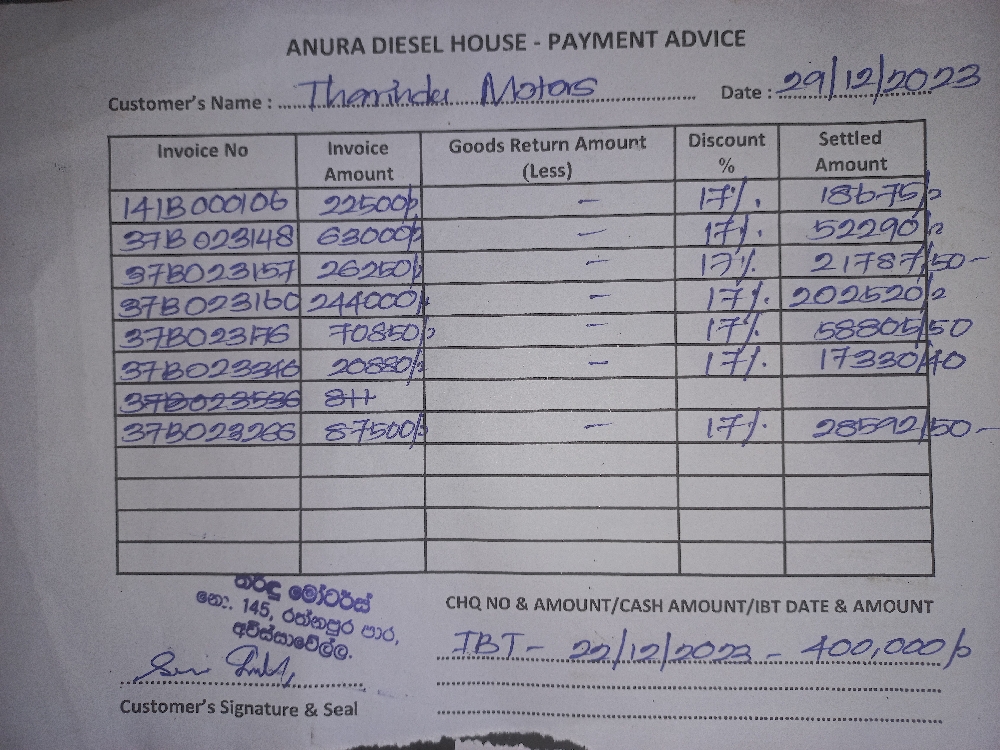 ANURA DIESEL HOUSE - PAYMENT ADVICE
Customer's Name : Tharindu Motors Date : 29/12/2023
Invoice No Invoice Amount Goods Return Amount (Less) Discount % Settled Amount
141B000106 22500/= — 17%. 18675/=
37B023148 63000/= — 17%. 52290/=
37B023157 26250/= — 17% 21787/50 —
37B023160 244000/= — 17%. 202520/=
37B023176 70850/= — 17% 58805/50
37B023346 20880/= — 17%. 17330/40
37B023536 811
37B023266 87500/= — 17%. 28592/50 —
තරිඳු මෝටර්ස්
නො. 145, රත්නපුර පාර,
අවිස්සාවේල්ල.
CHQ NO & AMOUNT/CASH AMOUNT/IBT DATE & AMOUNT
IBT - 22/12/2023 - 400,000/=
Customer's Signature & Seal